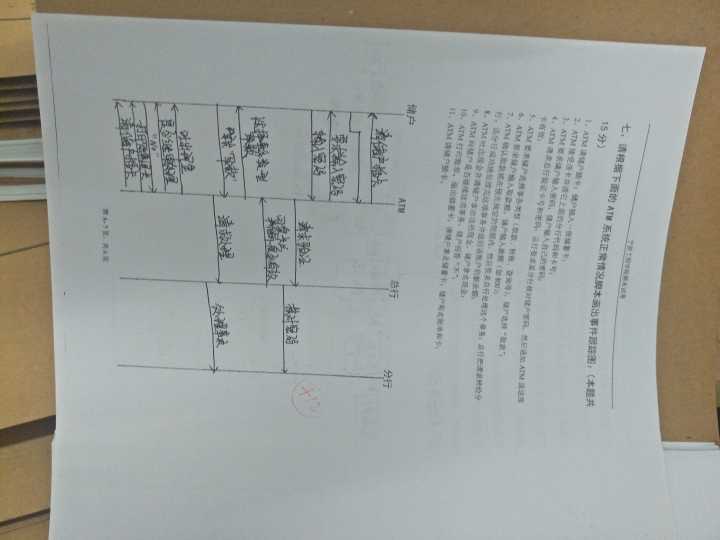 宁波工程学院期末试卷
七、请根据下面的 ATM 系统正常情况脚本画出事件跟踪图：（本题共
15 分）
1、ATM 请储户插卡；储户插入一张储蓄卡；
2、ATM 接受该卡并读它上面的分行代码和卡号；
3、ATM 要求储户输入密码；储户输入自己的密码；
4、ATM 请求总行验证卡号和密码；总行要求某分行核对储户密码，然后通知 ATM 说这张
卡有效；
5、ATM 要求储户选择事务类型（取款、转账、查询等），储户选择“取款”；
6、ATM 要求储户输入取款额，储户输入数额（如 800）；
7、ATM 确认取款额在预先规定的限额内，然后要求总行处理这个事务；总行把请求转给分
行，该分行成功地处理完这项事务并返回该账户的新余额；
8、ATM 吐出现金并请储户拿出这些现金，储户拿走现金；
9、ATM 问储户是否继续这项事务，储户回答“不”；
10、ATM 打印账单，退出储蓄卡，请储户拿走储蓄卡，储户取走账单和卡；
11、ATM 请储户插卡。
储户
ATM
总行
分行
请储户插卡
要求输入密码
输入密码
请求验证
核对密码
+12
选择事务类型
取款
选择"取款"
请求处理
处理事务
吐出现金
是否继续处理
"No"
请储户插卡
第 6-7 页，共 8 页